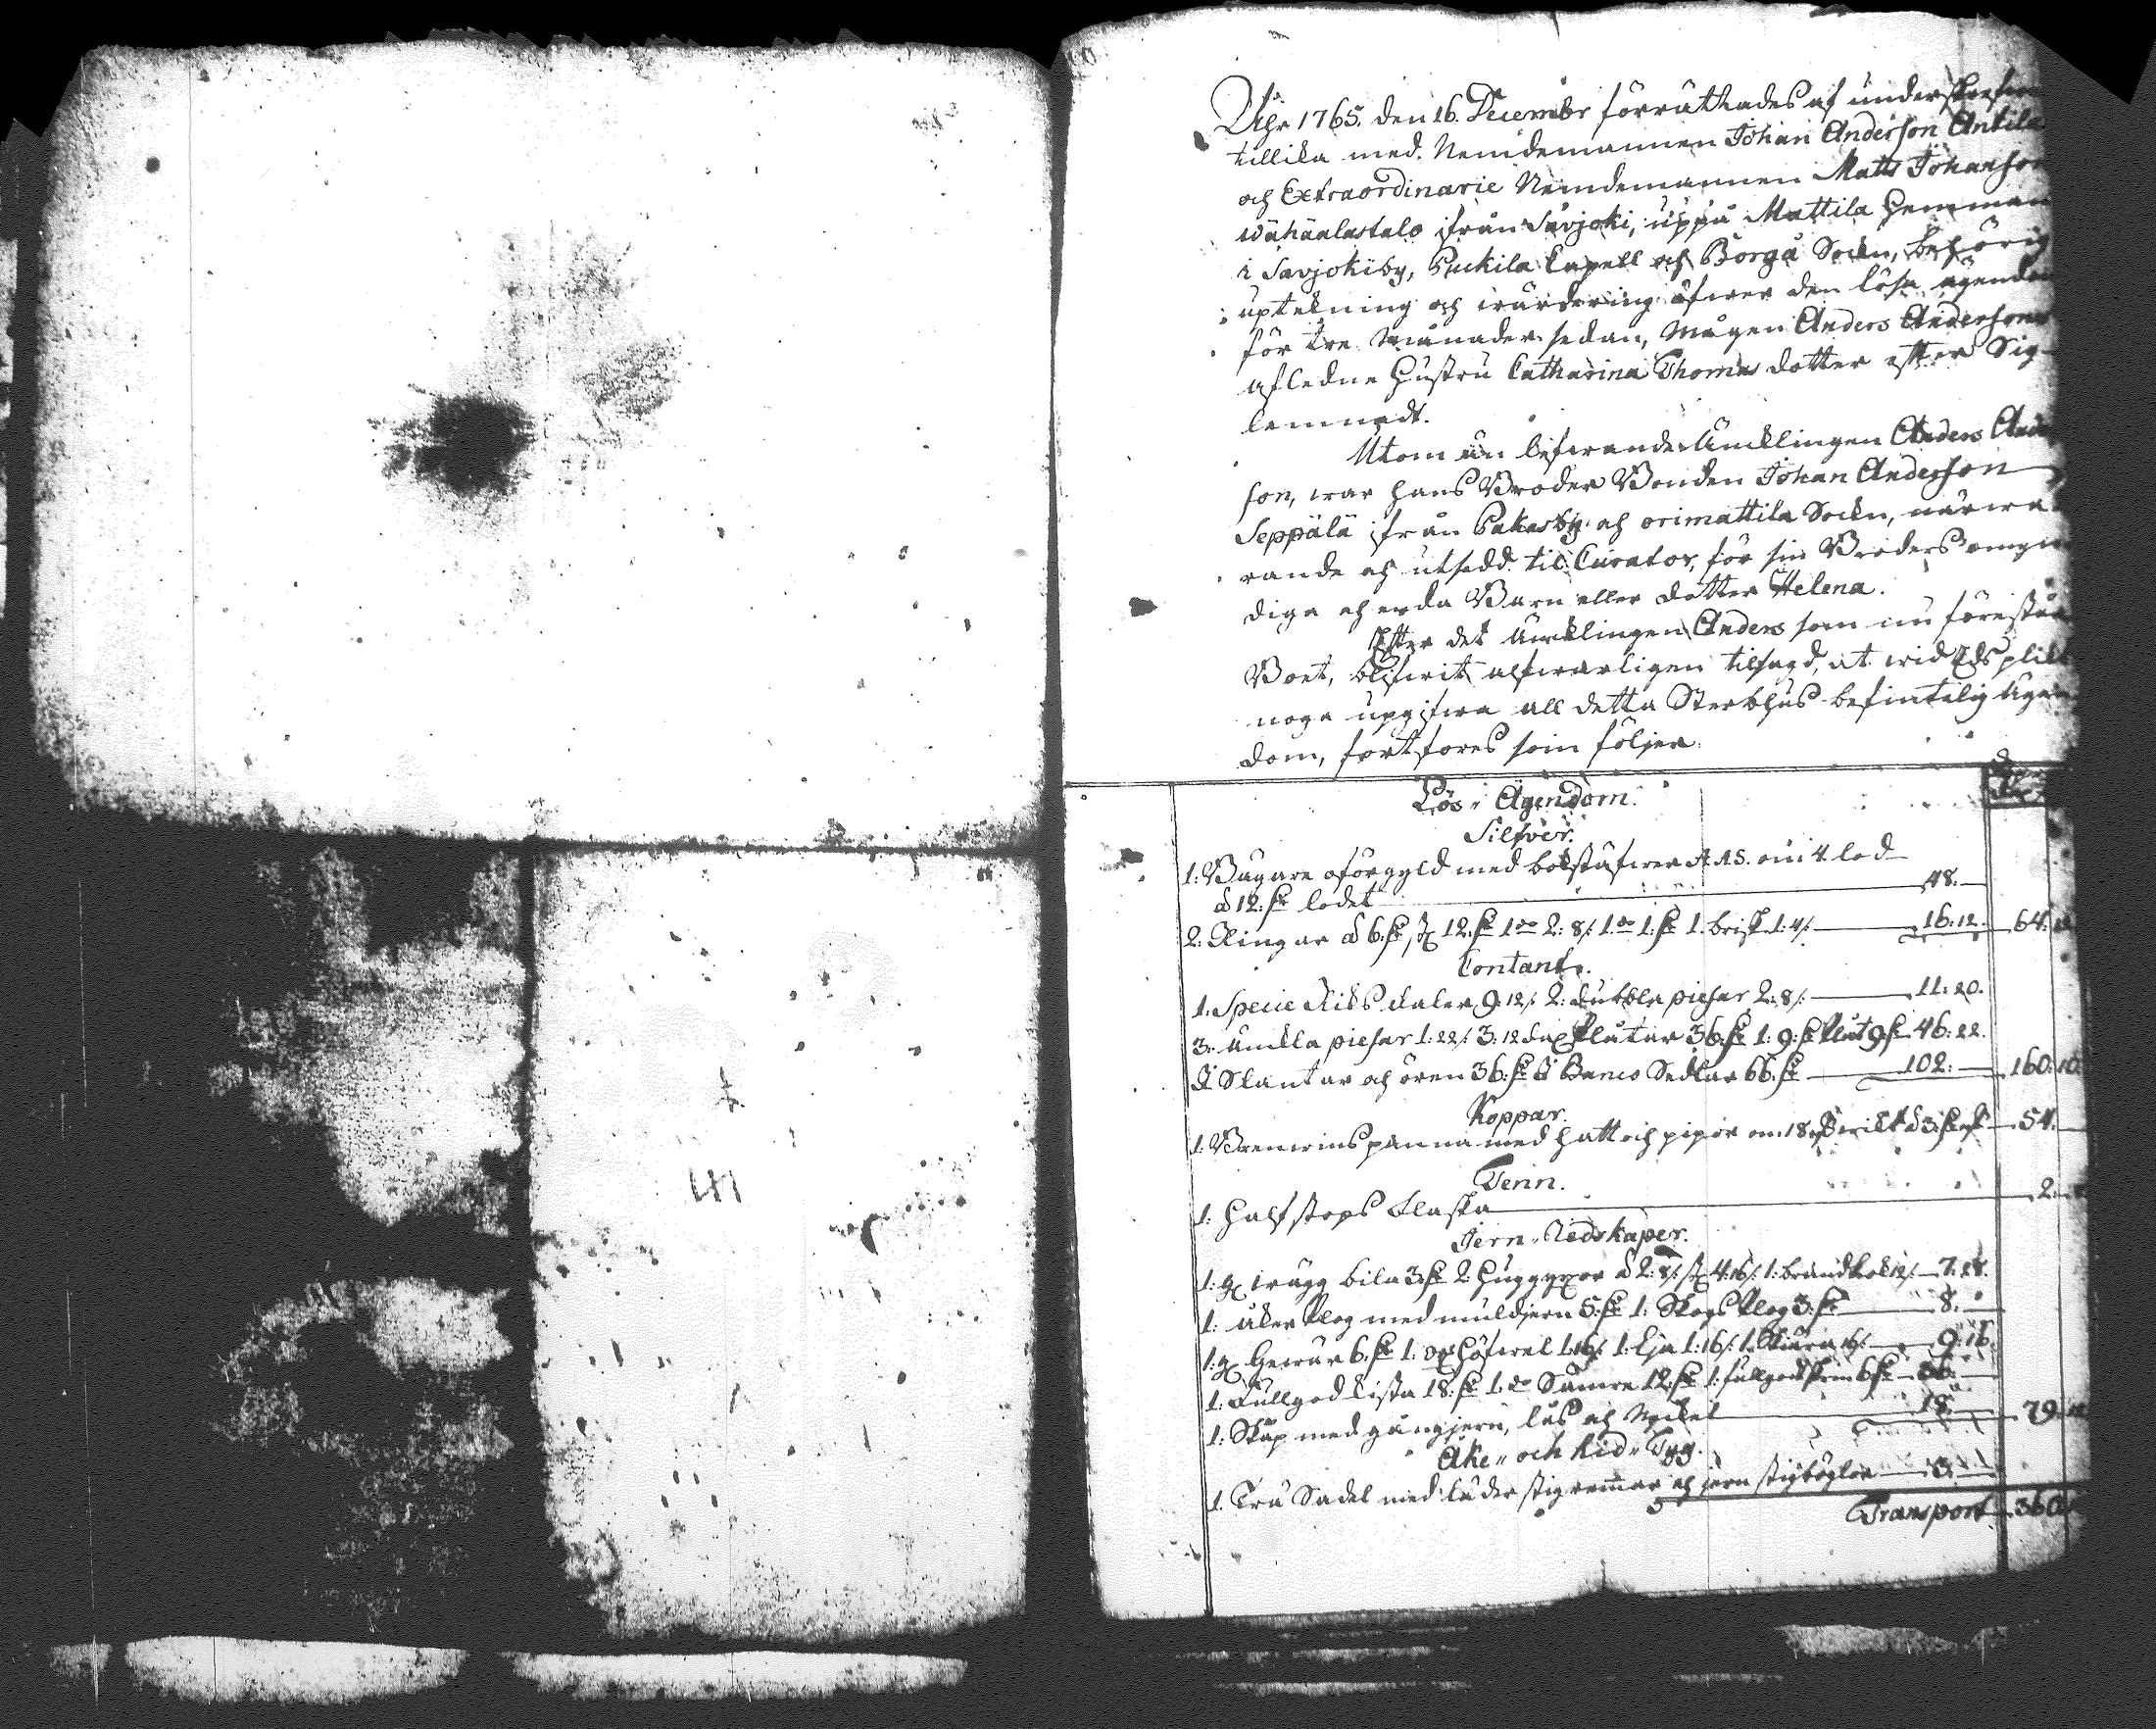 Åhr 1765. den 16. Decembr förrättades af underskrefne
tillika med Nemdemannen Johan Anderson Antila
och Extraordinarie Nemdemannen Matts Johanson
wähäalastalo ifrån Savjoki, uppå Mattila Hemman
i Savjokiby, Puckila Capell och Borgå Sockn, behörig
uptekning och wärdering öfwer den lösa ägendom
för tre månader sedan, Mågen Anders Andersons
afledne Hustru Catharina Thomas dotter efter Sig
lemnadt.
Utom än lefwande Änklingen Anders Ander
son, war hans Broder Bonden Johan Anderson
Seppälä ifrån Pakasby och orimattila Sockn, närwa
rande och utsedd til Curator, för sin Broders omyn
diga och enda Barn eller dotter Helena.
Efter det Änklingen Anders som nu förestår
Boet, blifwit alfwarligen tilsagd, at wid Eds plikt
noga upgifwa all detta Sterbhus befintelig Ägen
dom, fortfores som följer.
Lös Ägendom.
Silfver.
1. Bägare oförgyld med bokstäfwer A. A S. om 4 lod
à 12. lodet 48.
2. Ringar à 6. 12. 1 do 2: 8/. 1. do 1. 1. brisk 1: 4/. 16: 12. 64: 12
Contant.
1. Specie Riksdaler 9: 12/. 2. dubbla piesar 2: 8/. 11: 20.
3. Enckla piesar 1: 22/. 3. 12 Plåtar 36. 1. 9. Plåt 9. 46: 22.
Slantar och ören 36. Banco Sedlar 66. 102. 160: 10
Koppar.
1. Brenwins panna med hatt och pipor om 18 wikt à 3. 54.
Tenn.
1. Half stops Flaska 2.
Jern Redskaper.
1. wägg bila 3. 2. Huggyxor à 2: 8/. 4: 16/. 1. brandhake 12/. 7: 28.
1. åker Plog med muldjern 5. 1. Skogs Plog 3. 8.
1. Gewär 6. 1. Höfwel 1: 16/. 1. Lja 1: 16/. 1. Skära 16/. 9: 16.
1. Fullgod Kista 18. 1. do Sämre 12. 1. fullgod Skrin 6. 36.
1. Skåp med gångjern, lås och Nyckel 18. 79: 12
Åke och Rid Tyg.
1. Trä Sadel med läder stigremmar och jern stigbyglor 3.
Transport 360